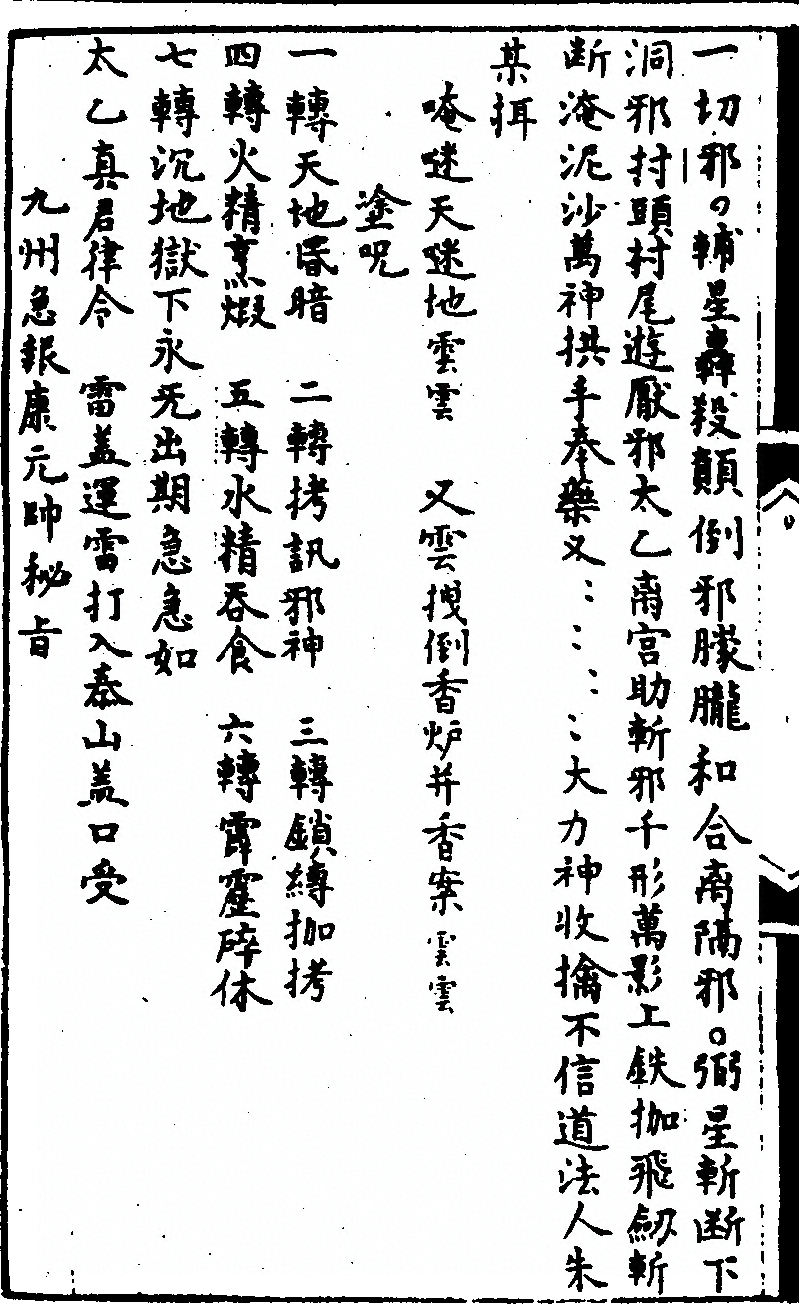 一切邪〻輔星轟殺顛倒邪朦朧和合离隔邪。弼星斬断下
洞邪村頭村尾遊厭邪太乙离宮助斬邪千形萬影上鉄枷飛劔斬
断淹泥沙萬神拱手奉藥叉：：：：大力神收擒不信道法人朱
某挕
唵㘈天㘈地雲雲　又雲拽倒香炉并香案雲雲
塗呪
一轉天地昏暗　二轉拷訊邪神　三轉鎖縛枷拷
四轉火精烹煅　五轉水精吞食　六轉霹靂碎体
七轉沉地獄下永旡出期急急如
太乙真君律令　雷盖運雷打入泰山盖口受
九州急報康元帥秘旨